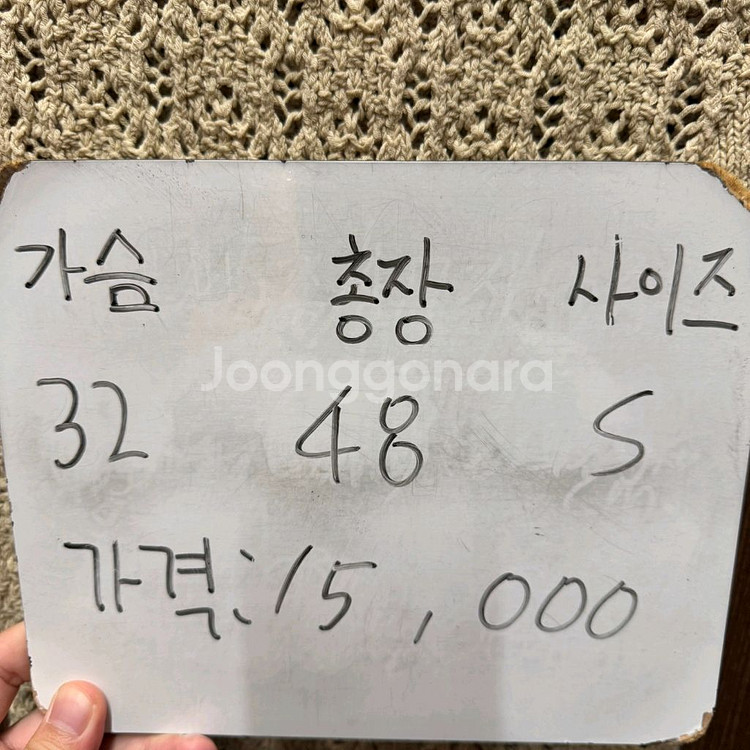 가슴 총장 사이즈
Joonggonara
32 48 S
가격: 15,000